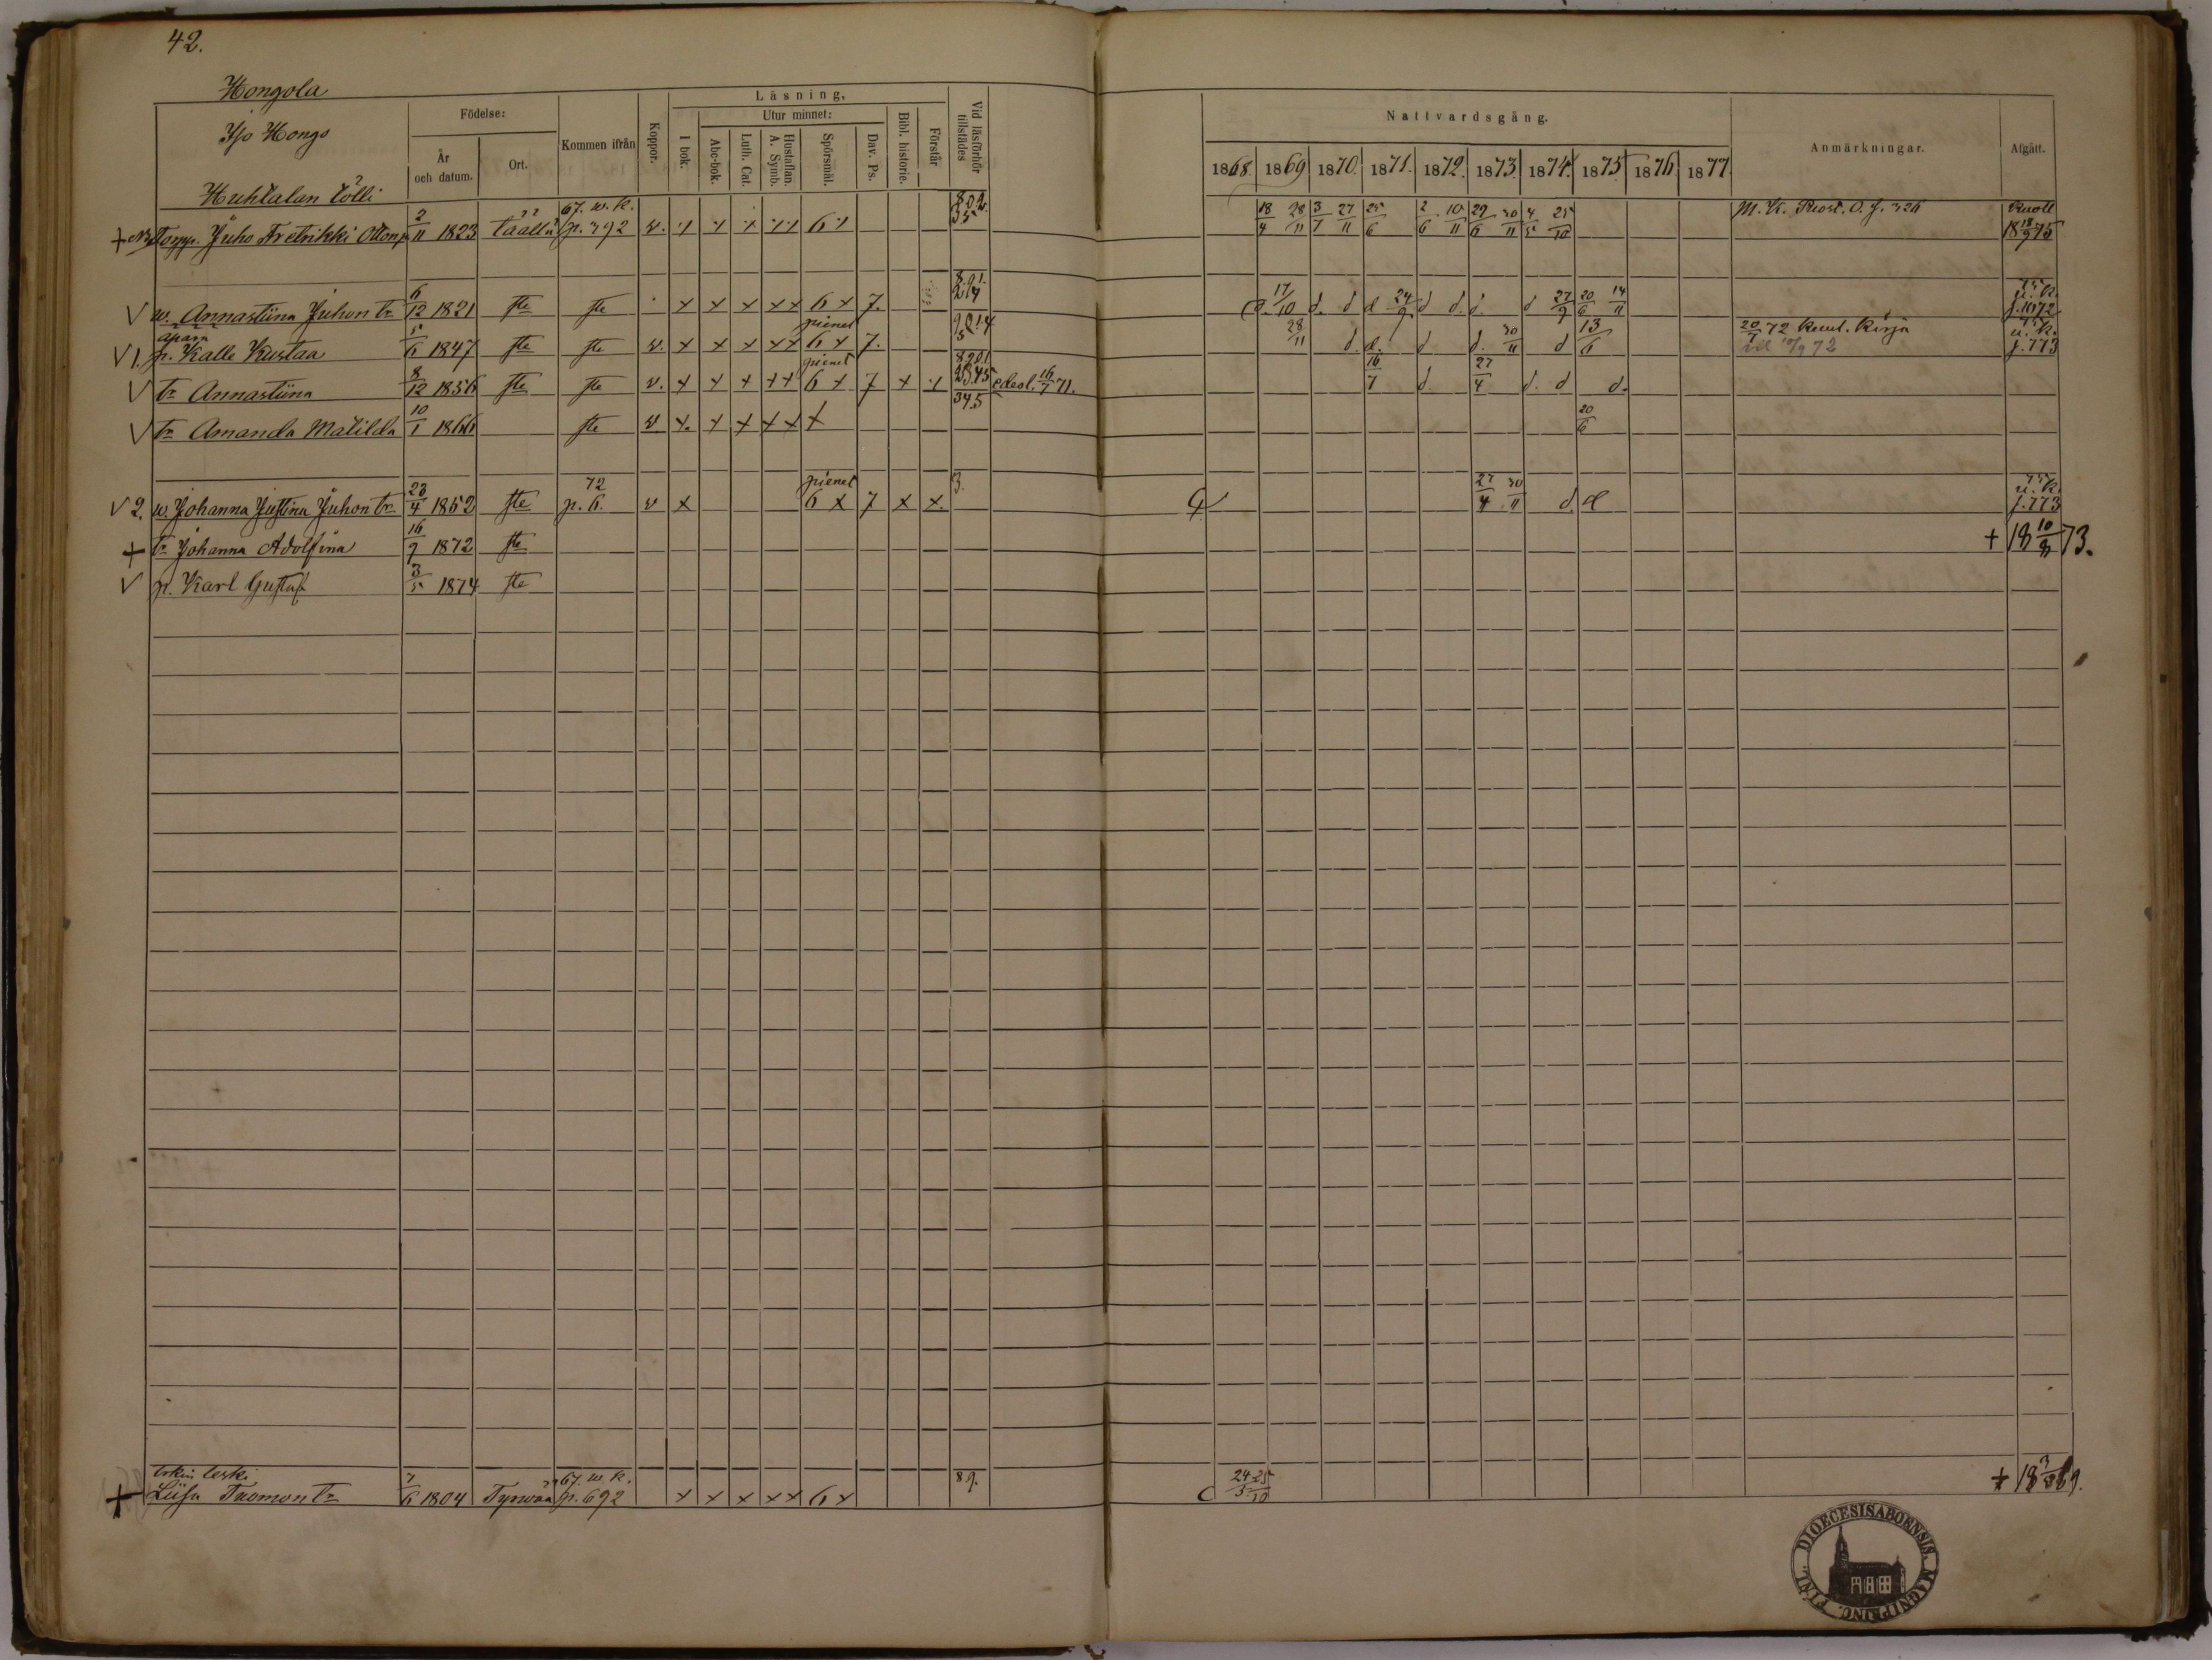 42.
Hongola
Iso Hongo
Huhtalan tölli
Födelse:
År och datum.
Ort.
Kommen ifrån
Koppor.
Läsning,
I bok.
Utur minnet:
Abc-bok.
Luth. Cat.
Hustaflan. A. Symb.
Spörsmål.
Dav. Ps.
Bibl. historie.
Förstår
Vid läsförhör tillstädes
Nattvardsgång.
1868. 1869 1870. 1871. 1872. 1873. 1874. 1875. 1876. 1877.
Anmärkningar.
Afgått.
+ Torpp. Juho Fretrikki Ottonp. 2/11 1823 täällä 67. w. k. p. 392 v. 6 18/4 28/11 3/7 27/11 25/6 2/6 10/11 29/6 30/11 4/5 25/10 M. K. Ruots. O. J. 326 Kuoll 18 18/9 75
V w. Annastiina Juhon tr 6/12 1821 ste ste x x x x x 6 x 7. d. 17/10 d. d d 24/9 d d. d. d 27/9 20/6 14/11 75 u. K.
apara
V 1. p. Kalle Kustaa 5/6 1847 ste ste v. x x x x x pienet 6 x 7. 28/11 d. d. d d. 30/11 d 13/6 20/7 72 kuul. Kirja 75 u. K. s. 773
V tr Annastiina 8/12 1856 ste ste v. x x x x x pienet 6 x 7 x edesl. 16/7 71. 16/7 d. 27/4 d. d d.
V tr Amanda Matilda 10/1 1866 ste v x. x x x x x 345 20/6
V 2. w. Johanna Justina Juhon tr. 23/4 1852 ste 72 p. 6. v x pienet 6 x 7 x x. 3. 27/4 30/11 d. d 75 u. K. s. 773
+ tr Johanna Adolfina 16/9 1872 ste + 18 10/8 73.
V p. Karl Gustaf 3/5 1874 ste
leski
+ Liisa Tuomon tr 7/6 1804 Tyrwää 67. w. k. p. 692 x x x x x 6 x 89. 24/3 25/10 + 18 69.
DIOECESIS ABOENSIS. MAGNI PRINC. FINL.